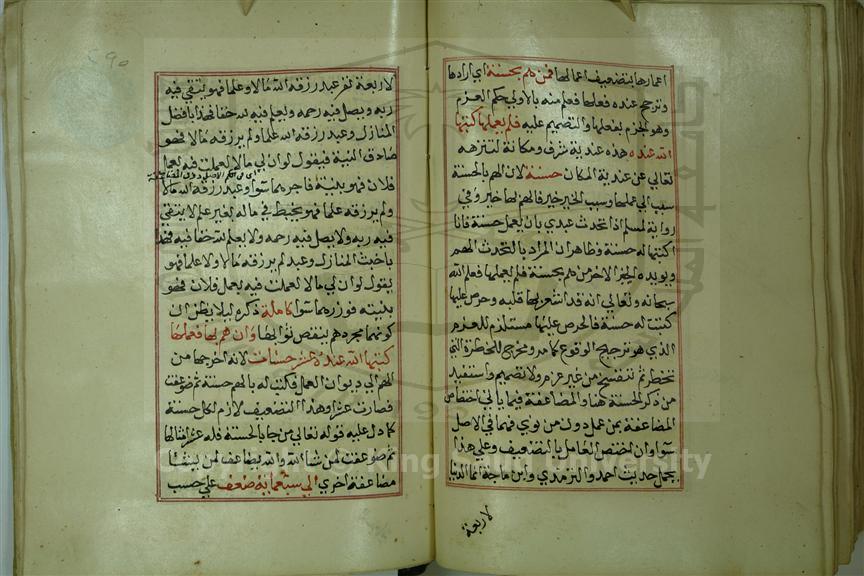 اعمارها بتضعيف اعمالها فمن هم بحسنة اي ارادها
وترجح عنده فعلها فعلم منه بالاولي حكم العزم
وهو الجزم بفعلها والتصميم عليه فلم يعملها كتبها
الله عنده هذه عندية شرف ومكانة لتنزهه
تعالي عن عندية المكان حسنة لان الهم بالحسنة
سبب الي عملها وسبب الخير خير فالهم بها خير وفي
رواية لمسلم اذا تحدث عبدي بان يعمل حسنة فانا
اكتبها له حسنة وظاهر ان المراد بالتحدث الهم
ويؤيده الخبر الاخر من هم بحسنة فلم يعملها فعلم الله
سبحانه وتعالي انه قد اشعر بها قلبه وحرص عليها
كتبت له حسنة فالحرص عليها مستلزم للعزم
الذي هو ترجيح الوقوع كما مر ومخرج للخطرة التي
تخطر ثم تنفسخ من غير عزم ولا تصميم واستفيد
من ذكر الحسنة هنا والمضاعفة فيما ياتي اختصاص
المضاعفة بمن عمل دون من نوي فهما في الاصل
سوا وان اختص العامل بالتضعيف وعلي هذا
يحمل حديث احمد والترمذي وابن ماجة انما الدنيا
لاربعة
لاربعة نفر عبد رزقه الله مالا وعلما فهو يتقي فيه
ربه ويصل فيه رحمه ويعلم فيه لله حقا فهذا بافضل
المنازل وعبد رزقه الله علما ولم يرزقه مالا فهو
صادق النية فيقول لو ان لي مالا لعملت فيه بعمل
فلان فهو بنيته فاجرهما سوا وعبد رزقه الله مالا
ولم يرزقه علما فهو يخبط في ماله بغير علم لا يتقي
فيه ربه ولا يصل فيه رحمه ولا يعلم لله حقا فيه فهذا
باخبث المنازل وعبد لم يرزقه مالا ولا علما فهو
يقول لو ان لي مالا لعملت فيه بعمل فلان فهو
بنيته فوزرهما سوا كاملة ذكره ليلا يظن ان
كونهما مجرد هم ينقص ثوابها وان هم بها فعملها
كتبها الله عنده عشر حسنات لانه اخرجها من
الهم الي ديوان العمل فكتب له بالهم حسنة ثم ضوعفت
فصارت عشرا وهذا التضعيف لازم لكل حسنة
كما دل عليه قوله تعالي من جا بالحسنة فله عشر امثالها
ثم ضوعفت لمن شا الله والله يضاعف لمن يشا
مضاعفة اخري الي سبعماية ضعف علي حسب